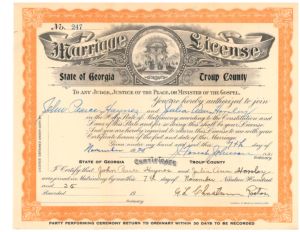 No. 247
Marriage License
State of Georgia Troup County
TO ANY JUDGE, JUSTICE OF THE PEACE, OR MINISTER OF THE GOSPEL.
You are hereby authorized to join
John and Julia Ann
in the Holy State of Matrimony according to the Constitution and
Laws of this State and for so doing this shall be your License
And you are hereby required to return this License to me with your
Certificate hereon of the fact and date of the Marriage.
Given under my hand and seal this
November
STATE OF GEORGIA Certificate TROUP COUNTY
I Certify that John Haynes and Julia Ann
were joined in Matrimony by me this 7th day of November Nineteen Hundred
and 25
Recorded 19
PARTY PERFORMING CEREMONY RETURN TO ORDINARY WITHIN 30 DAYS TO BE RECORDED